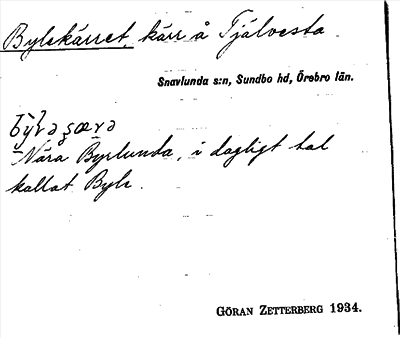 Bylskärret, kärr å Tjälvesta.
Snavlunda s:n, Sundbo hd, Örebro län.
Nära Byrlunda, i dagligt tal
kallat Byle.
GÖRAN ZETTERBERG 1934.